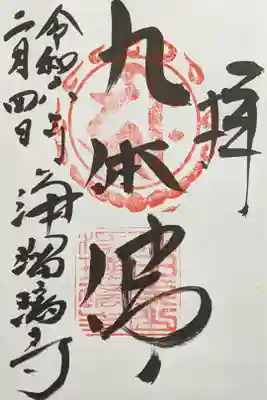 拝
九体佛
令和六年
二月四日
浄瑠璃寺